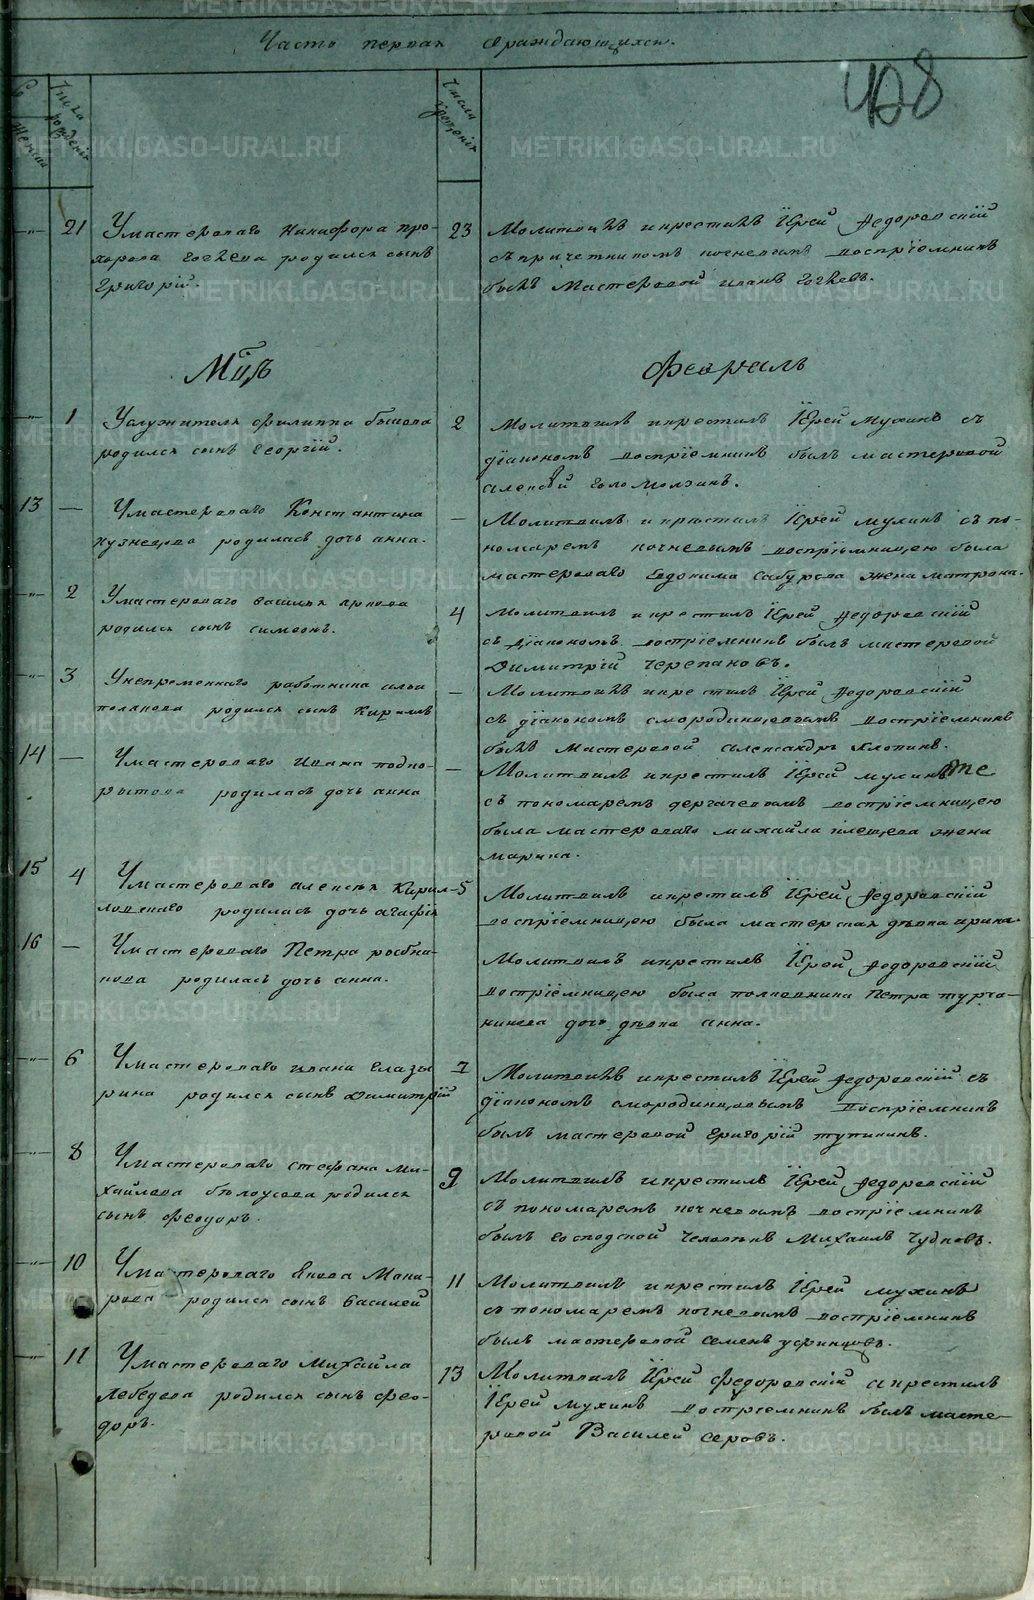 Часть первая о раждающихся.
408
Числа рожденія
Числа крещенія
Женска
21 Умастероваго Никифора Про-
хорова родился сынъ
Григорій.
23 Молитвилъ икрестилъ Іерей Федоровскій
съ причетникомъ почневымъ воспріемникъ
былъ Мастеровой иванъ
Мцъ
Февраль
1 Услужителя Филиппа
родился сынъ Георгій.
2 Молитвилъ икрестилъ Іерей Мухинъ съ
діакономъ воспріемникъ былъ мастеровой
алексѣй
13 — Умастероваго Константина
Кузнецова родилась дочь анна.
— Молитвилъ и крестилъ Іерей мухинъ съ по-
номаремъ почневымъ воспріемницею была
мастероваго Евдокима Сабурова жена матрона.
2 Умастероваго василья
родился сынъ симеонъ.
4 Молитвилъ икрестилъ Іерей Федоровскій
съ діакономъ воспріемникъ былъ мастеровой
Димитрій Черепановъ.
3 Унепременнаго работника ильи
полякова родился сынъ Кириллъ
— Молитвилъ икрестилъ Іерей Федоровскій
съ діакономъ смородинцовымъ воспріемникъ
былъ мастеровой александръ Хлопинъ.
14 — Умастероваго Ивана подко-
рытова родилась дочь анна
— Молитвилъ икрестилъ Іерей мухинъ
съ пономаремъ дергачевымъ воспріемницею
была мастероваго михайла плещева жена
Марина.
15 4 Умастероваго алексѣя Кирил-
ловскаго родилась дочь агафія
5 Молитвилъ икрестилъ Іерей Федоровскій
воспріемницею была мастерская дѣвка ирина
16 — Умастероваго Петра
родилась дочь анна.
Молитвилъ икрестилъ Іерей Федоровскій
воспріемницею была Петра турча-
нинова дочь дѣвка анна.
6 Умастероваго ивана Глазы
рина родился сынъ Димитрій
7 Молитвилъ икрестилъ Іерей Федоровскій съ
діакономъ смородинцовымъ воспріемникъ
былъ мастеровой Григорій тупикинъ.
8 Умастероваго стефана Ми-
хайлова бѣлоусова родился
сынъ Феодоръ.
9 Молитвилъ икрестилъ Іерей Федоровскій
съ пономаремъ почневымъ воспріемникъ
былъ Господской Человѣкъ Михаилъ Чудновъ.
10 Умастероваго Якова Мака-
рова родился сынъ Василей
11 Молитвилъ икрестилъ Іерей мухинъ
съ пономаремъ почневымъ воспріемникъ
былъ мастеровой Семенъ уфинцовъ.
11 Умастероваго Михайла
Лебедева родился сынъ Фео-
доръ.
13 Молитвилъ Іерей Федоровскій акрестилъ
Іерей Мухинъ воспріемникъ былъ масте-
ровой Василей Серовъ.
METRIKI.GASO-URAL.RU